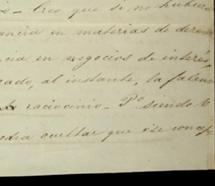 - Creo que si no hubiera
ancia en materias de derec
ncia en negocios de interés,
rado, al instante, la falenc
raciocinio - Pº siendo
edia ocultar que ese conce